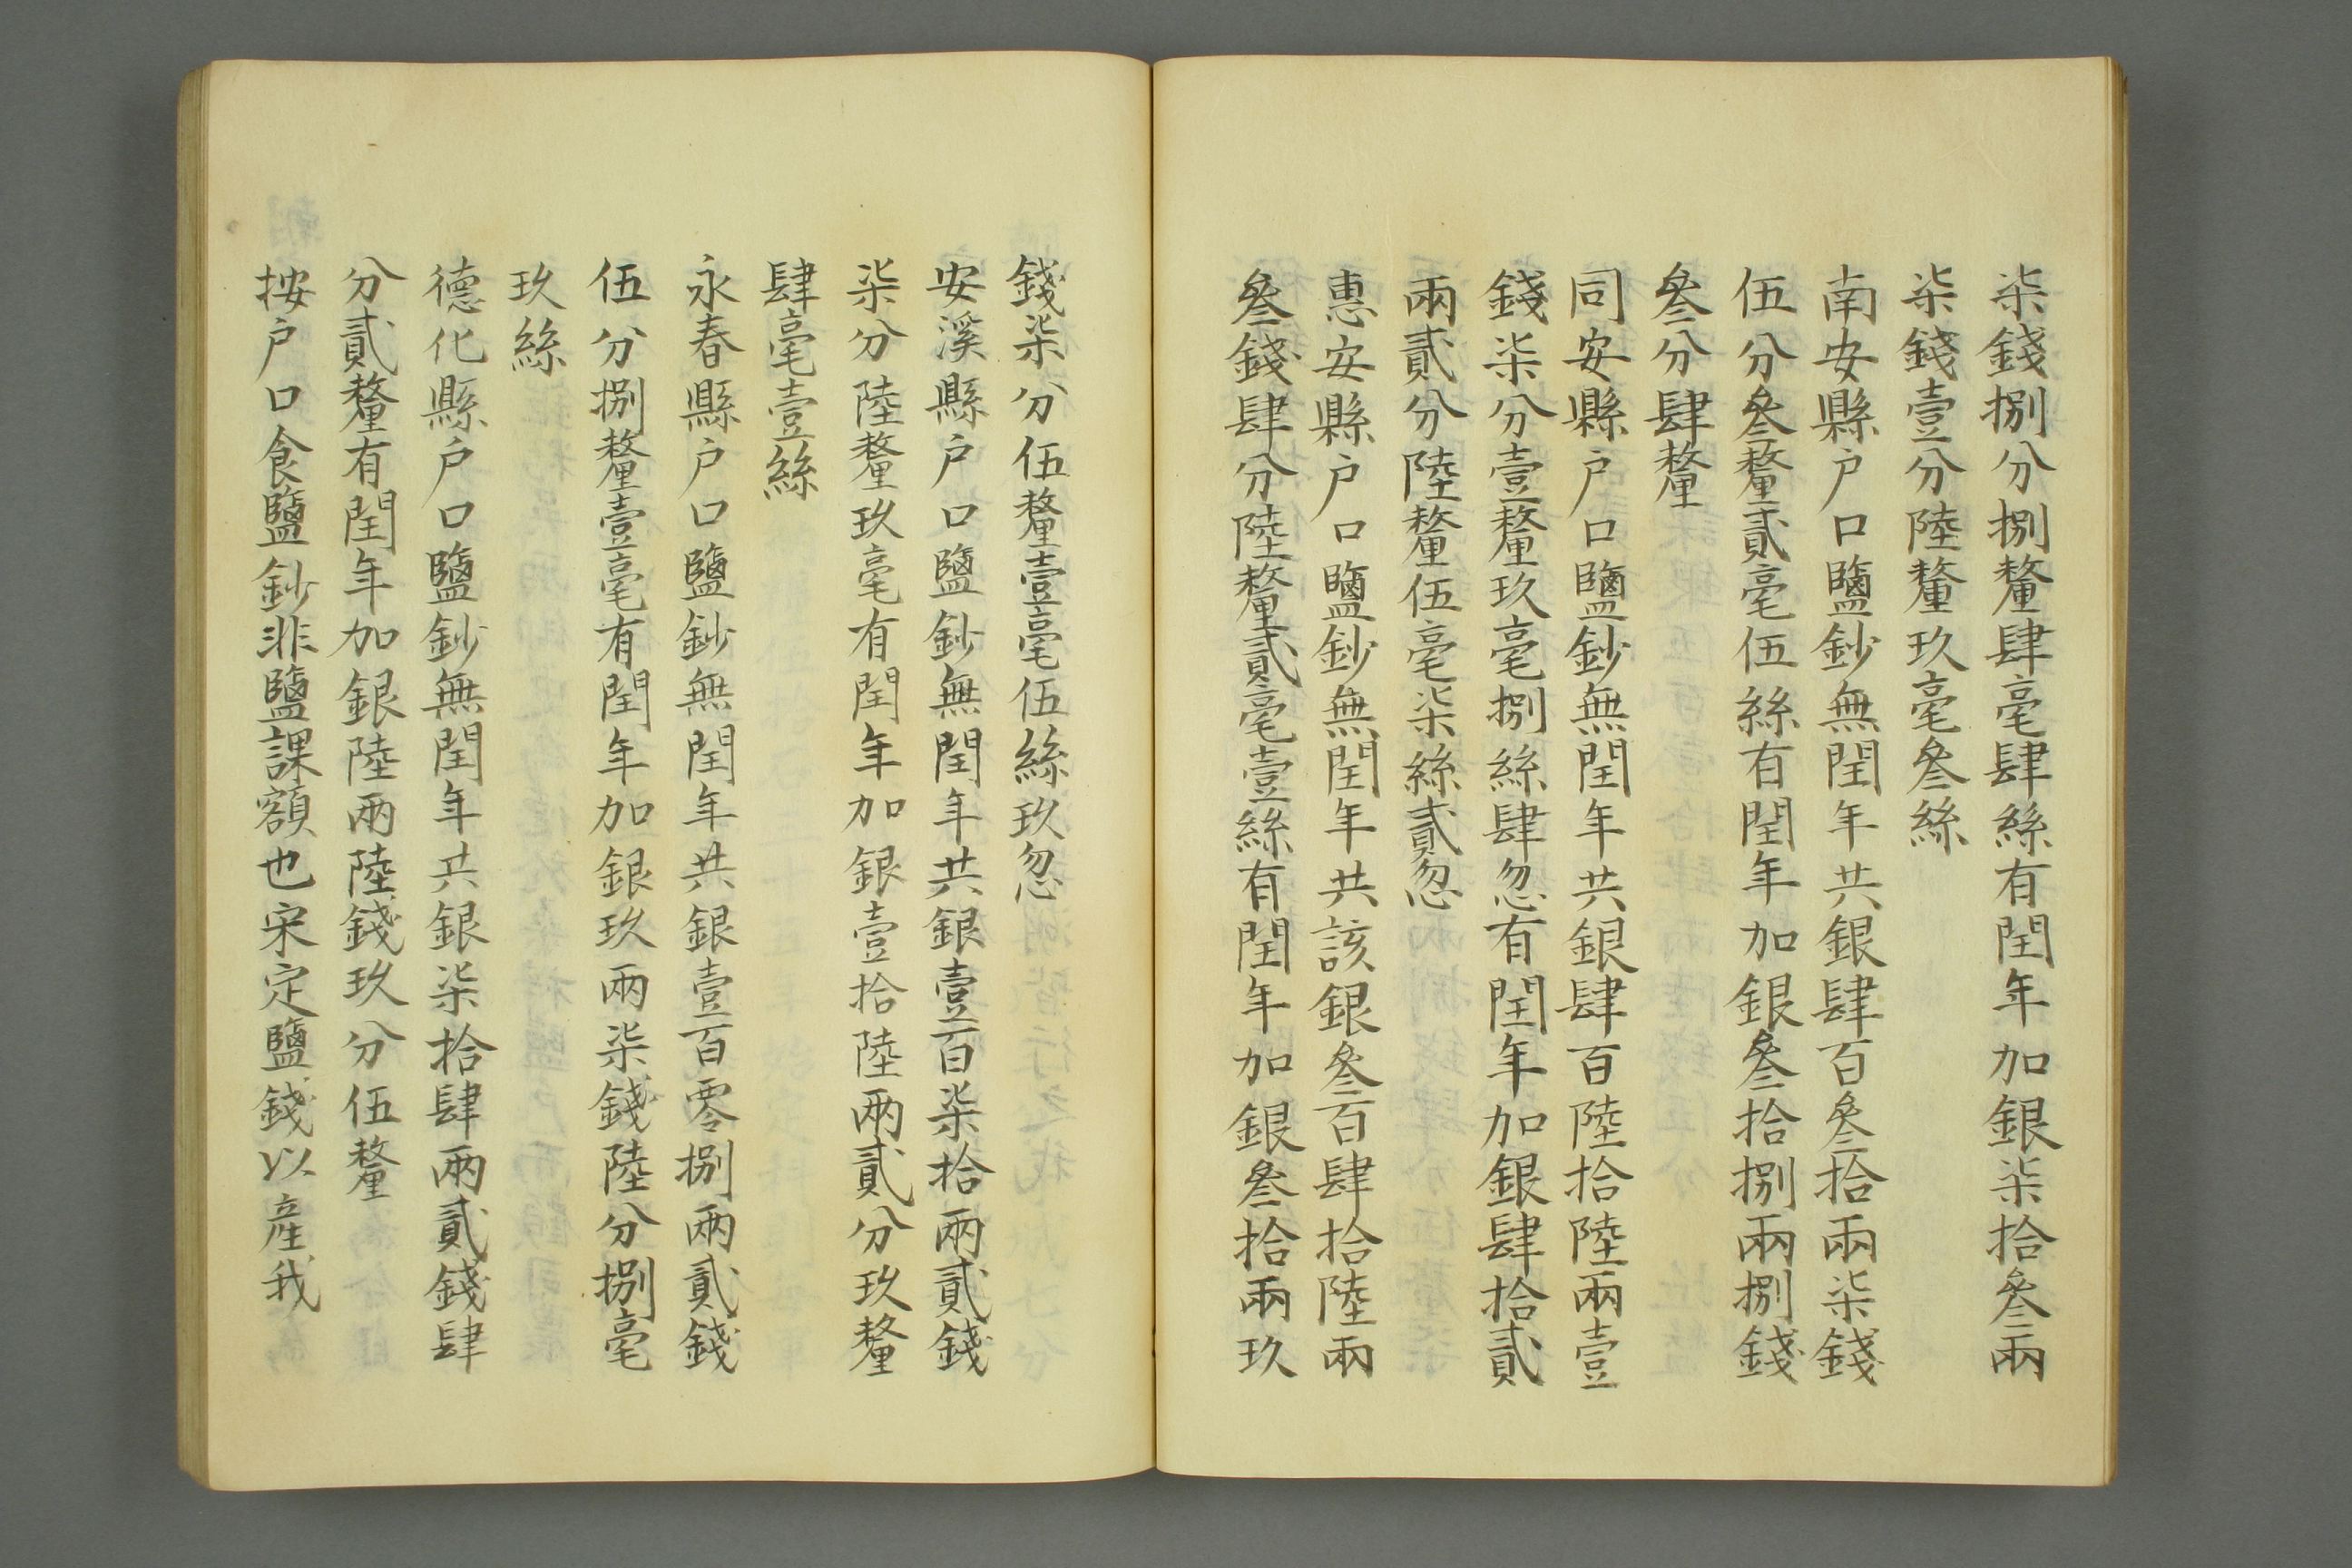 柒錢捌分捌釐肆毫肆絲有閏年加銀柒拾叄兩
柒錢壹分陸釐玖毫叄絲
南安縣户口鹽鈔無閏年共銀肆百叄拾兩柒錢
伍分叄釐貳毫伍絲有閏年加銀叄拾捌兩捌錢
叄分肆釐
同安縣户口鹽鈔無閏年共銀肆百陸拾陸兩壹
錢柒分壹釐玖毫捌絲肆忽有閏年加銀肆拾貳
兩貳分陸釐伍毫柒絲貳忽
惠安縣户口鹽鈔無閏年共該銀叄百肆拾陸兩
叄錢肆分陸釐貳毫壹絲有閏年加銀叄拾兩玖
錢柒分伍釐壹毫伍絲玖忽
安溪縣户口鹽鈔無閏年共銀壹百柒拾兩貳錢
柒分陸釐玖毫有閏年加銀壹拾陸兩貳分玖釐
肆毫壹絲
永春縣户口鹽鈔無閏年共銀壹百零捌兩貳錢
伍分捌釐壹毫有閏年加銀玖兩柒錢陸分捌毫
玖絲
德化縣户口鹽鈔無閏年共銀柒拾肆兩貳錢肆
分貳釐有閏年加銀陸兩陸錢玖分伍釐
按户口食鹽鈔非鹽課額也宋定鹽錢以產我